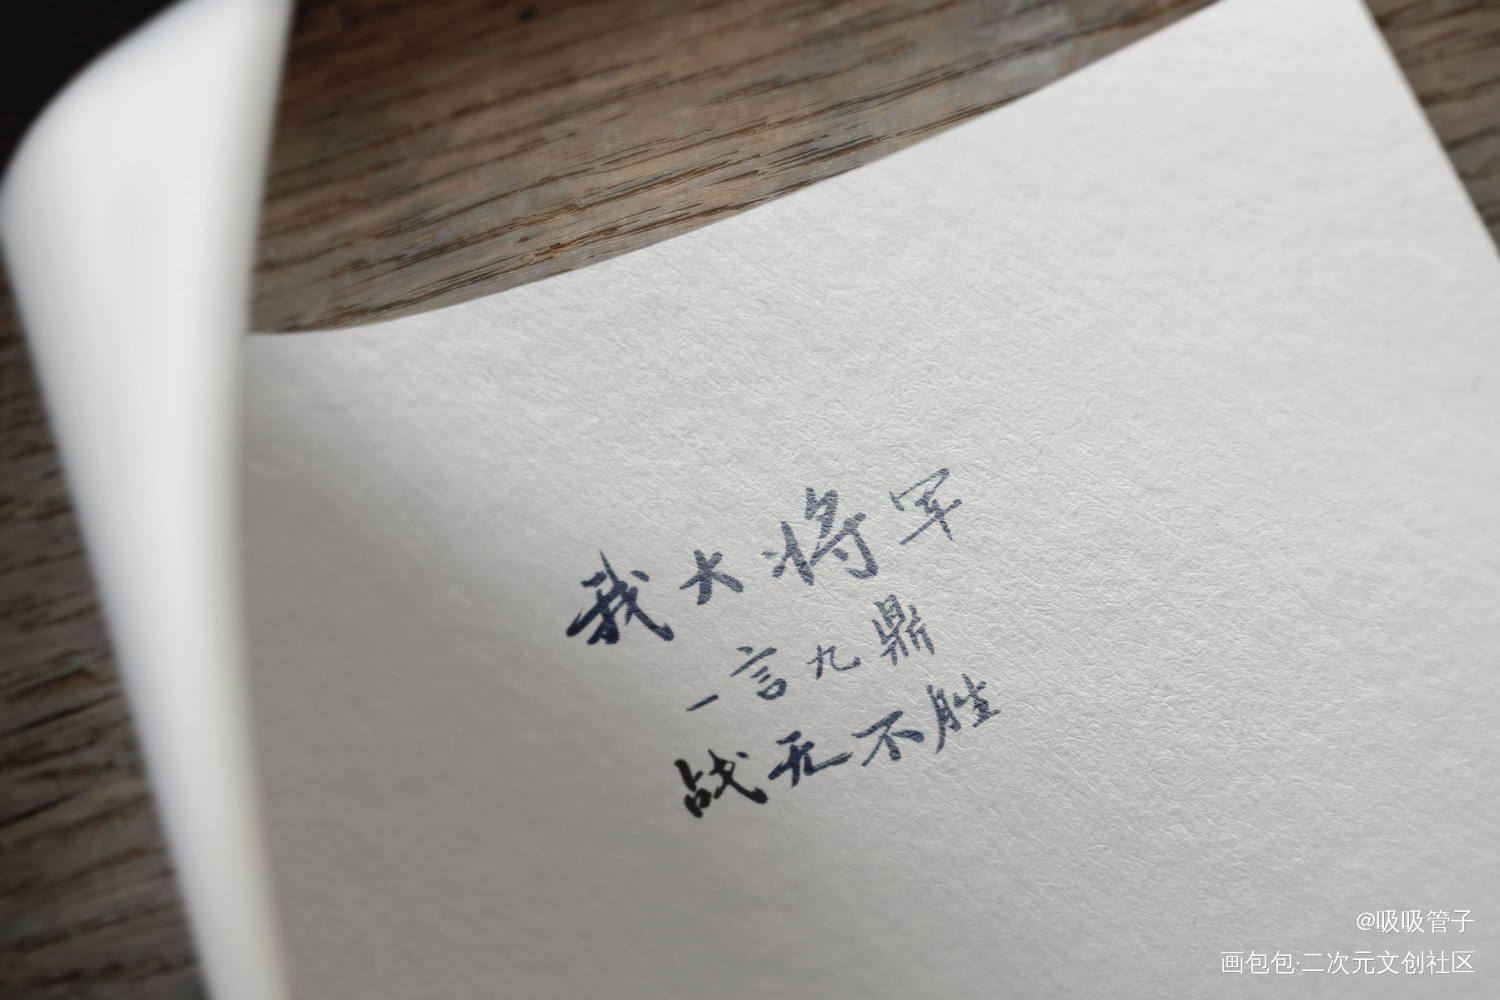 我大将军
一言九鼎
战无不胜
@吸吸管子
画包包·二次元文创社区